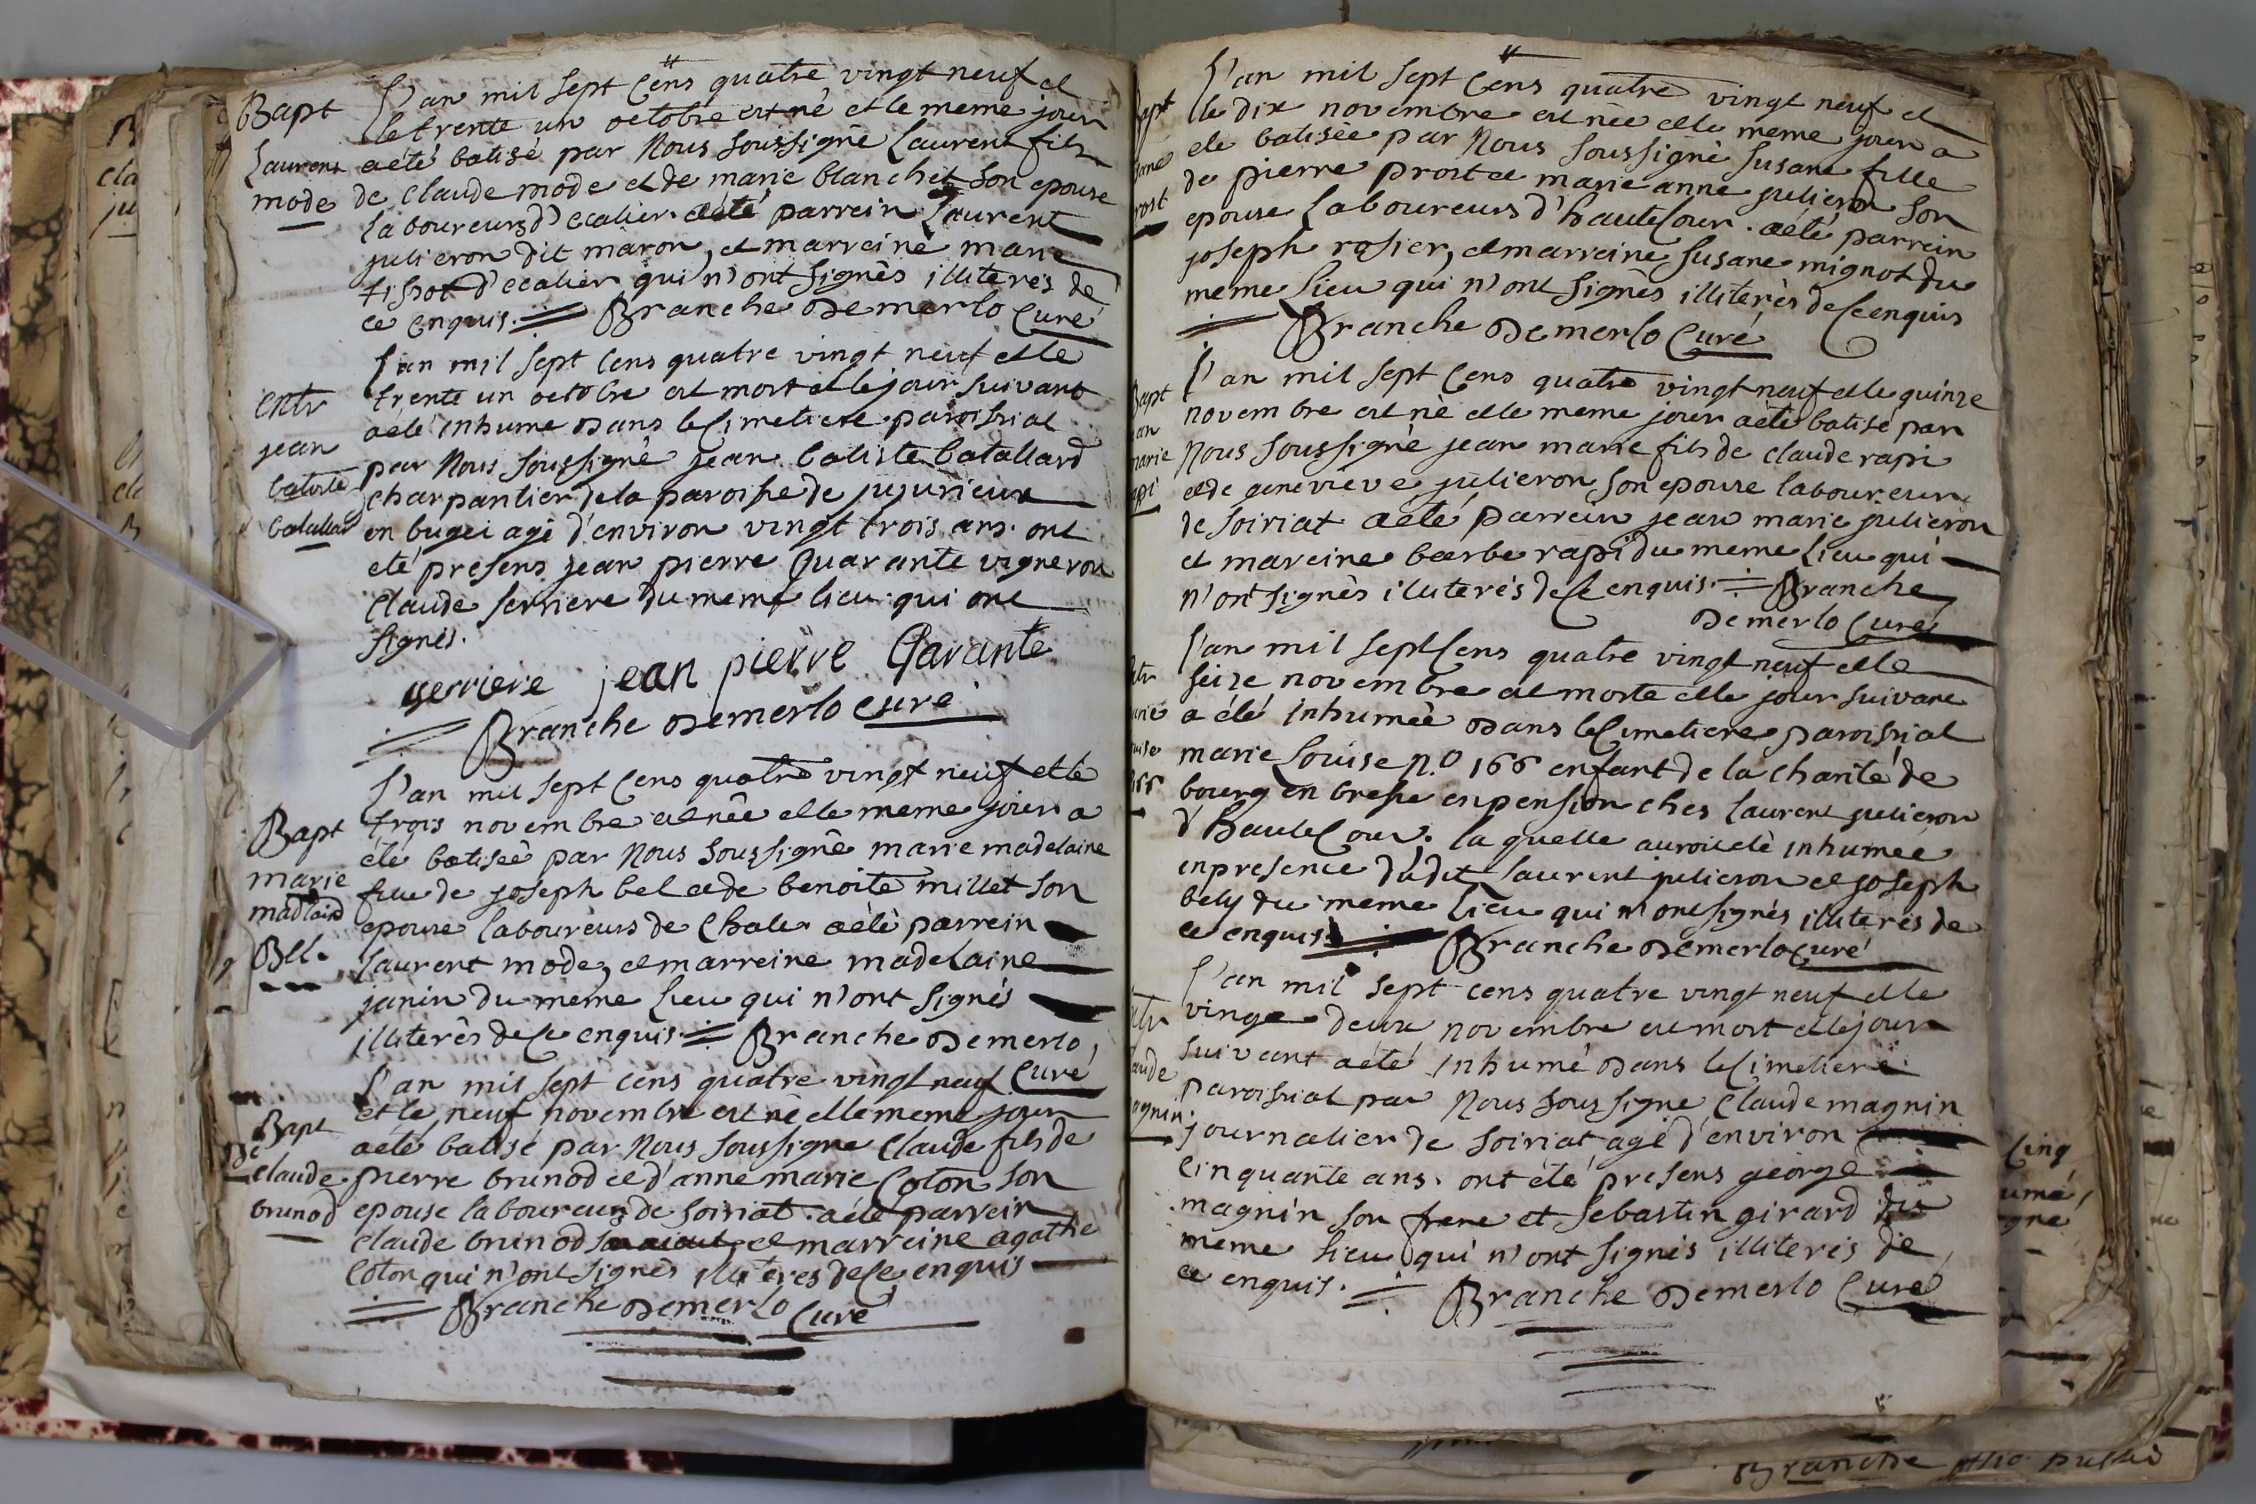 Bapt
Laurent
mode
L'an mil sept Cens quatre vingt neuf et
le trente un octobre est né et le meme jour
a été batisé par Nous soussigné Laurent fils
de claude mode et de marie blanchet son epouse
laboureurs d'ecalier. a été parrein Laurent
julieron dit maron, et marreine marie
tissot d'ecalier qui n'ont signés illiterés de
ce enquis. Branche Demerlo Curé
entr
jean
batiste
batallard
L'an mil sept Cens quatre vingt neuf et le
trente un octobre est mort et le jour suivant
a été inhume dans le Cimetiere paroissial
par Nous soussigné jean batiste batallard
charpantier de la paroisse de jujurieux
en bugei agé d'environ vingt trois ans. ont
eté presens jean pierre Quarante vigneron
Claude serriere du meme lieu qui ont
signés.
serriere jean pierre Garante
Branche Demerlo curé
Bapt
marie
madlaine
Bel.
L'an mil sept Cens quatre vingt neuf et le
trois novembre est née et le meme jour a
été batisée par Nous soussigné marie madelaine
fille de joseph bel et de benoite millet son
epouse laboureurs de Chale. a été parrein
laurent mode, et marreine madelaine
janin du meme lieu qui n'ont signés
illiterés de Ce enquis. Branche Demerlo
Curé
Bapt
claude
brunod
L'an mil sept cens quatre vingt neuf
et le neuf novembre est né et le meme jour
a été batisé par Nous soussigné Claude fils de
pierre brunod et d'anne marie Coton son
epouse laboureurs de soiriat. a été parrein
claude brunod et marreine agathe
Coton qui n'ont signés illiterés de Ce enquis
Branche Demerlo Curé
L'an mil sept Cens quatre vingt neuf et
le dix novembre est née et le meme jour a
ete batisée par Nous soussigné Susane fille
de pierre prost et marie anne julieron son
epouse laboureurs d'hauteCour. a été parrein
joseph rosier, et marreine Susane mignot du
meme Lieu qui n'ont signés illiterés de Ce enquis
Branche Demerlo Curé
L'an mil sept Cens quatre vingt neuf et le quinze
novembre est né et le meme jour a été batisé par
Nous soussigné jean marie fils de claude rapi
et de genevieve julieron son epouse laboureurs
de soiriat a été parrein jean marie julieron
et mareine barbe rapi du meme Lieu qui
n'ont signés illiterés de Ce enquis. Branche
Demerlo Curé
L'an mil sept Cens quatre vingt neuf et le
seize novembre est morte et le jour suivant
a été inhumée dans le Cimetiere paroissial
marie Louise n.o 166 enfant de la charité de
bourg en bresse en pension ches laurent julieron
d'hauteCour. la quelle auroit été inhumée
en presence dudit laurent julieron et joseph
bely du meme Lieu qui n'ont signés illiterés de
ce enquis Branche Demerlo Curé
L'an mil sept cens quatre vingt neuf et le
vingt deux novembre est mort et le jour
suivant a été inhumé dans le Cimetiere
paroissial par Nous soussigné Claude magnin
journalier de soiriat agé d'environ
Cinquante ans. ont été presens george
magnin son frere et sebastin girard du
meme lieu qui n'ont signés illiterés de
ce enquis. Branche Demerlo Curé
Branche